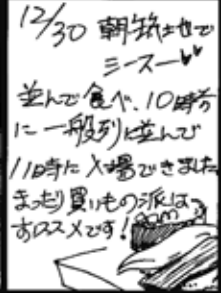 12/30 朝築地で
ミースー♥♥
並んで食べ、10時前
に一般列に並んで
11時に入場できました
まったり買いもの派は
オススメです!